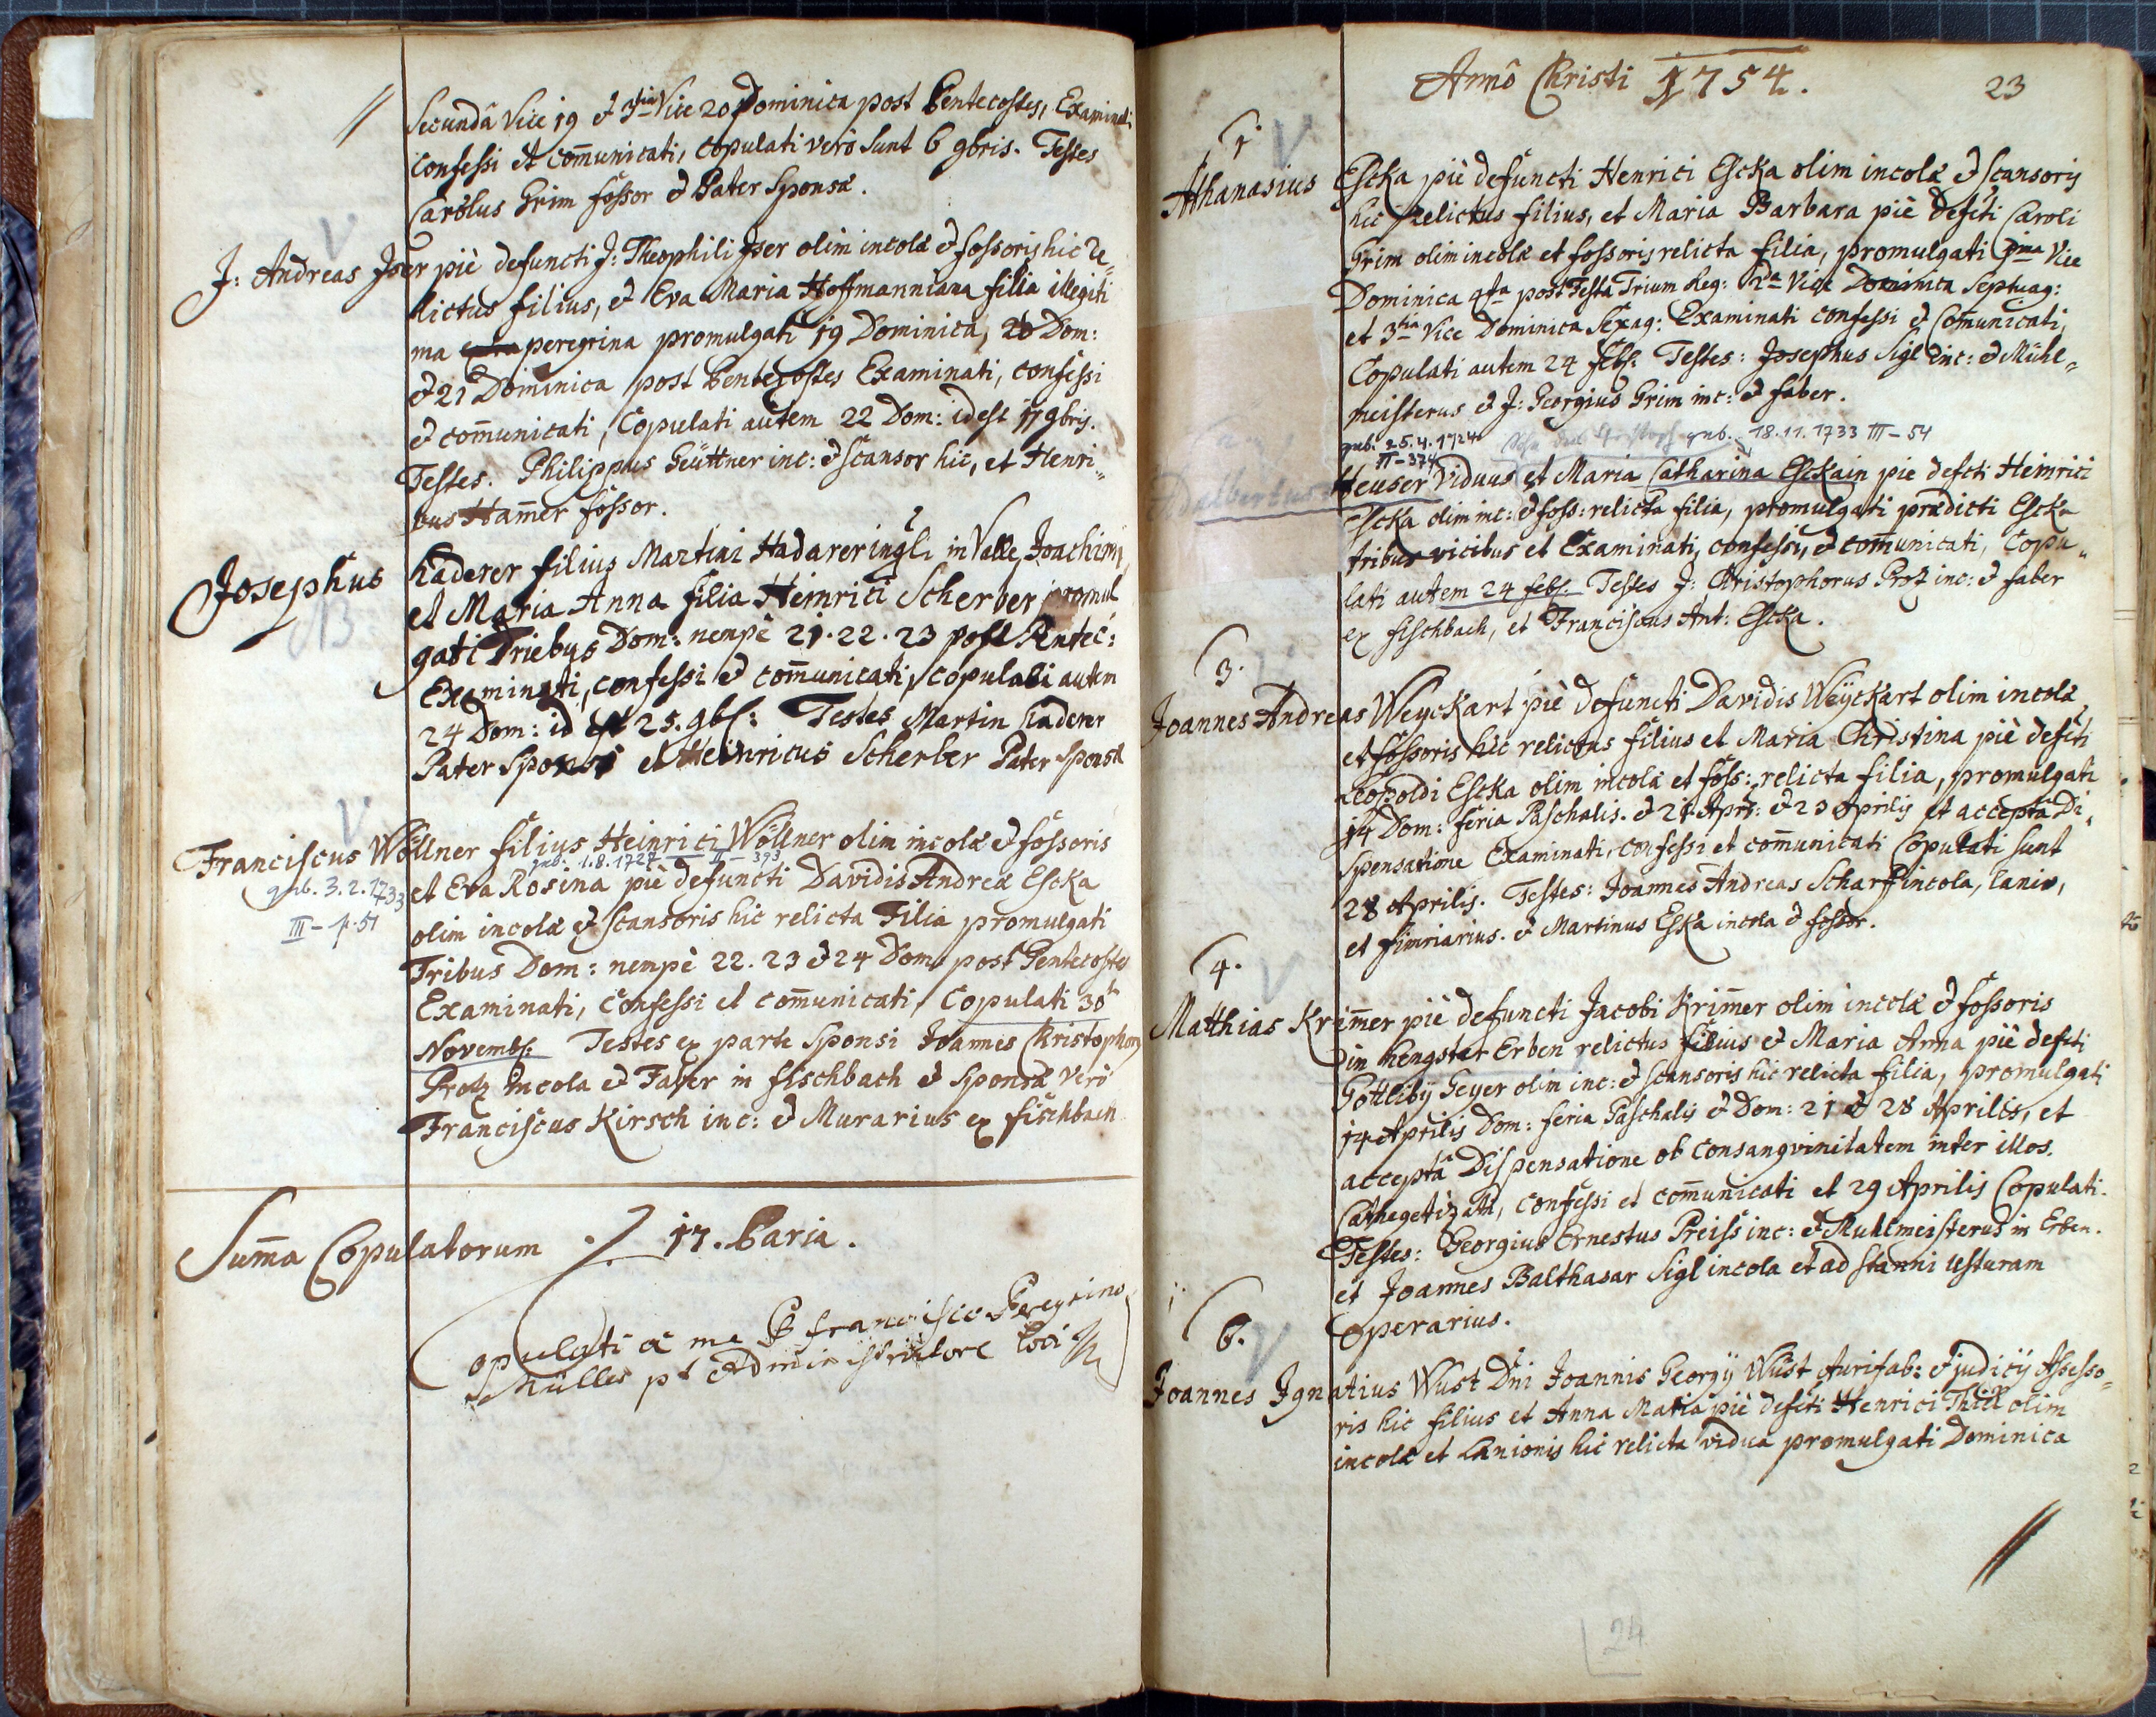 //
Secundâ Vice 19 et 3tia Vice 20 Dominica post Pentecostes, Examinati
confessi et com̄unicati, copulati verò sunt 6 9bris. Testes
Carolus Grim fossor et Pater Sponsæ.
J: Andreas Jser piè defuncti J: Theophili Jser olim incolæ et fossoris hic re„
lictus filius, et Eva Maria Hoffmanniana filia illegiti
ma peregrina promulgati 19 Dominica, 20 Dom:
et 21 Dominica post Pentecostes Examinati, confessi
et com̄unicati, Copulati autem 22 Dom: id est 11 9bris.
Testes. Philippus Geüttner inc: et scansor hic, et Henri„
cus Ham̄er fossor.
Josephus Haderer filius Martini Hadarer in Valle Joachim
et Maria Anna filia Heinrici Scherber promul
gati Triebus Dom: nempè 21. 22. 23 post Pentec:
Examinati, confessi et com̄unicati, copulati autem
24 Dom: id est 25. 9br: Testes Martin Haderer
Pater Sponsi et Heinricus Scherber Pater Sponsæ
Franciscus Wöllner filius Heinrici Wöllner olim incolæ et fossoris
gub. 3.2.1733
III - p. 51
gub. 1.8.1727 II - 393
et Eva Rosina piè defuncti Davidis Andreæ Escka
olim incolæ et scansoris hic relicta Filia promulgati
Tribus Dom: nempè 22. 23 et 24 Dom: post Pentecostes
Examinati, Confessi et com̄unicati, Copulati 30
Novembr: Testes ex parte Sponsi Joannes Christophorus
Protz incola et Faber in fischbach et Sponsæ verò
Franciscus Kirsch inc: et Murarius ex fischbach
Sum̄a Copulatorum 17. Paria.
Copulati a me P Francisco Peregrino
Müller pt Administratore loci
Annô Christi 1754.
23
1.
Athanasius Escka piè defuncti Henrici Escka olim incolæ et scansoris
hic relictus filius, et Maria Barbara piè defcti Caroli
Grim olim incolæ et fossoris relicta filia, promulgati 1ma Vice
Dominica 4ta post Festa Trium Reg: 2da Vice Dominica Septuag:
et 3tia Vice Dominica Sexag: Examinati confessi et Com̄unicati,
Copulati autem 24 febr: Testes: Josephus Sigl inc: et Mühl„
meisterus et J: Georgius Grim inc: et faber.
gub. 25.4.1724
II-374
gub. 18.11.1733 III-54
Adalbertus Heuser Viduus et Maria Catharina Esckain pie defcti Heinrici
Escka olim inc: et foss: relicta filia, promulgati prædicti Escka
tribus vicibus et Examinati, confessi, et com̄unicati, Copu„
lati autem 24 febr. Testes J: Christophorus Protz inc: et faber
ex fischbach, et Franciscus Ant: Escka.
3.
Joannes Andreas Weyckart piè defuncti Davidis Weyckart olim incolæ,
et fossoris hic relictus filius et Maria Christina piè defcti
Leopoldi Escka olim incolæ et foss: relicta filia, promulgati
14 Dom: feria Paschalis. et 21 Apr: et 23 Aprilis et acceptâ Di„
spensatione Examinati, confessi et com̄unicati Copulati sunt
28 Aprilis. Testes: Joannes Andreas Scharf incola, lanio,
et fimriarius. et Martinus Eska incola et fossor.
4.
Matthias Krim̄er piè defuncti Jacobi Krim̄er olim incolæ et fossoris
in Hengster Erben relictus filius et Maria Anna piè defcti
Gottliby Geyer olim inc: et scansoris hic relicta filia, promulgati
14 Aprilis Dom: feria Paschalis et Dom: 21 et 28 Aprilis, et
acceptâ Dispensatione ob consangvinitatem inter illos.
Cathegetizati, confessi et com̄unicati et 29 Aprilis Copulati.
Testes: Georgius Ernestus Preiss inc: et Muhlmeisterus in Erben.
et Joannes Balthasar Sigl incola et ad stanni Usturam
Operarius.
6.
Joannes Ignatius Wüst Dni Joannis Georgy Wüst Aurifab: et judicy Assesso„
ris hic filius et Anna Maria piè defcti Henrici Thiel olim
incolæ et Lanionis hic relicta vidua promulgati Dominica
//
24